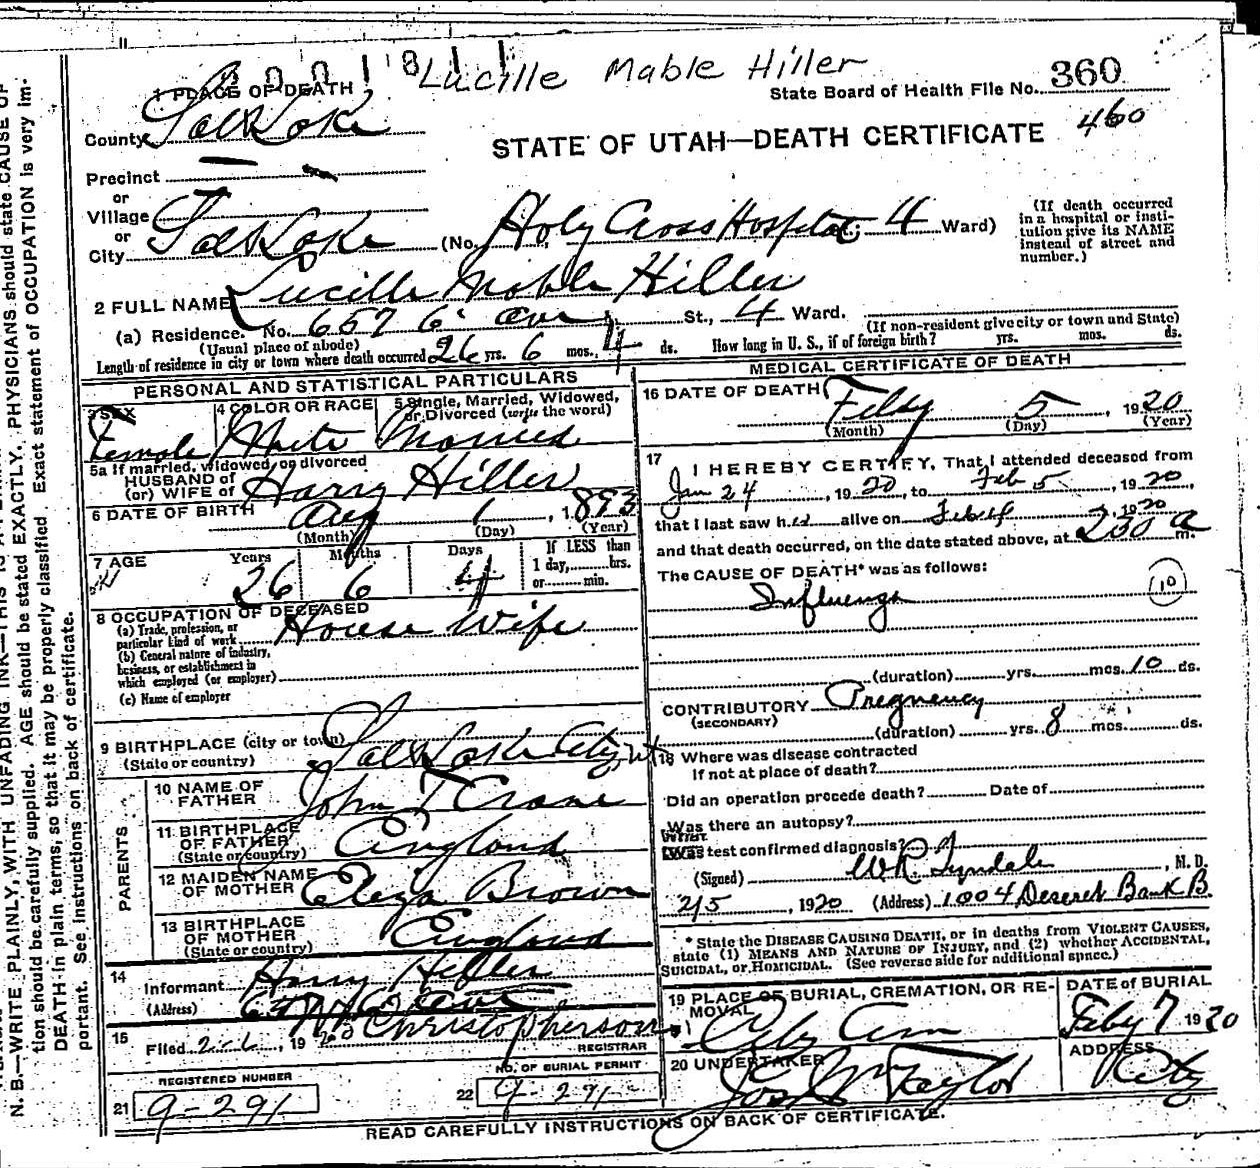 Lucille Mable Hiller
1 PLACE OF DEATH
State Board of Health File No. 360
County Salt Lake
STATE OF UTAH—DEATH CERTIFICATE 460
Precinct
or
Village
or
City Salt Lake (No. Holy Cross Hospital 4 Ward)
(If death occurred in a hospital or insti-
tution give its NAME
instead of street and
number.)
2 FULL NAME Lucille Mable Hiller
(a) Residence. No. 657 6" Ave St., 4 Ward.
(Usual place of abode) (If non-resident give city or town and State)
Length of residence in city or town where death occurred 26 yrs. 6 mos. 4 ds. How long in U. S., if of foreign birth? yrs. mos. ds.
PERSONAL AND STATISTICAL PARTICULARS
3 SEX Female
4 COLOR OR RACE White
5 Single, Married, Widowed, or Divorced (write the word) Married
5a If married, widowed, or divorced
HUSBAND of
(or) WIFE of Harry Hiller
6 DATE OF BIRTH Aug 1, 1893
(Month) (Day) (Year)
7 AGE Years 26 Months 6 Days 4
If LESS than
1 day, hrs.
or min.
8 OCCUPATION OF DECEASED
(a) Trade, profession, or
particular kind of work House Wife
(b) General nature of industry,
business, or establishment in
which employed (or employer)
(c) Name of employer
9 BIRTHPLACE (city or town) Salt Lake City, Ut
(State or country)
PARENTS
10 NAME OF FATHER John T Crane
11 BIRTHPLACE OF FATHER England
(State or country)
12 MAIDEN NAME OF MOTHER Eliza Brown
13 BIRTHPLACE OF MOTHER England
(State or country)
14 Informant Harry Hiller
(Address)
15 Filed 19 20 Christopherson
REGISTRAR
REGISTERED NUMBER
21 9-291
NO. OF BURIAL PERMIT
22 9-291
MEDICAL CERTIFICATE OF DEATH
16 DATE OF DEATH Feby 5, 1920
(Month) (Day) (Year)
17 I HEREBY CERTIFY, That I attended deceased from
Jan 24, 1920, to Feb 5, 1920,
that I last saw her alive on Feb 4, 1920
and that death occurred, on the date stated above, at 230 a m.
The CAUSE OF DEATH* was as follows:
Influenza 10
(duration) yrs. mos. 10 ds.
CONTRIBUTORY Pregnency
(SECONDARY)
(duration) yrs. 8 mos. ds.
18 Where was disease contracted
if not at place of death?
Did an operation procede death? Date of
Was there an autopsy?
What test confirmed diagnosis?
(Signed) W R Tyndale, M. D.
2/5, 1920 (Address) 1004 Deseret Bank B
* State the DISEASE CAUSING DEATH, or in deaths from VIOLENT CAUSES,
state (1) MEANS AND NATURE OF INJURY, and (2) whether ACCIDENTAL,
SUICIDAL, or HOMICIDAL. (See reverse side for additional space.)
19 PLACE OF BURIAL, CREMATION, OR RE-
MOVAL City Cem
DATE of BURIAL
Feby 7 1920
20 UNDERTAKER Jos Wm Taylor
ADDRESS City
READ CAREFULLY INSTRUCTIONS ON BACK OF CERTIFICATE.
N. B.—WRITE PLAINLY, WITH UNFADING INK—THIS IS A
tion should be carefully supplied. AGE should be stated EXACTLY. PHYSICIANS should state CAUSE OF
DEATH in plain terms, so that it may be properly classified. Exact statement of OCCUPATION is very im-
portant. See instructions on back of certificate.